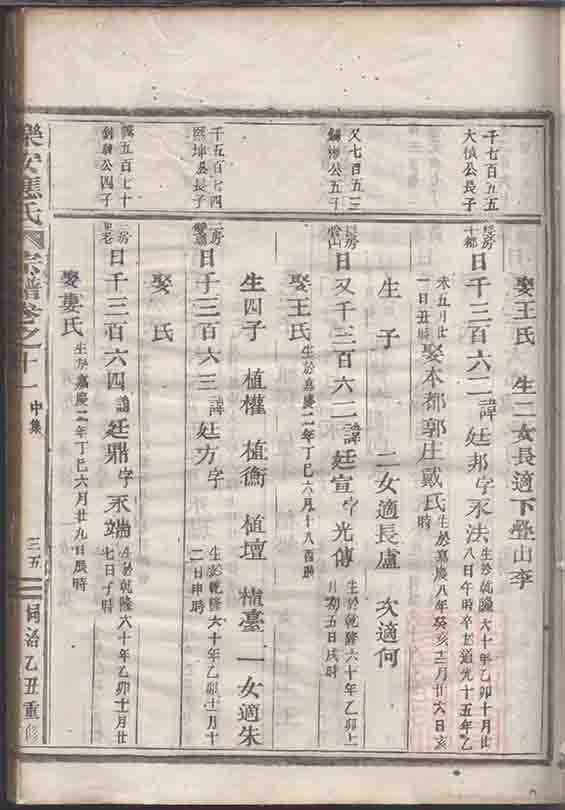 娶王氏 生二女長適下疊山李
千七百五五
大楨公長子
日千三百六二諱廷邦字永法
生於乾隆六十年乙卯十月廿
八日午時卒於道光十五年乙
未五月廿
一日丑時
娶本都郭庄戴氏
生於嘉慶八年癸亥十二月廿六日亥
時
生 子 二女適長盧 次適何
又七百五三
公五子
日又千三百六二諱廷宣字光傳
生於乾隆六十年乙卯十
月初五日戌時
娶王氏
生於嘉慶二年丁巳六月十八酉時
生四子 植權 植衡 植壇 植臺 一女適朱
千五百七四
熙坤公長子
日千三百六三諱廷方字
生於乾隆六十年乙卯十月十
二日申時
娶 氏
五百七十
公四子
日千三百六四諱廷鼎字永端
生於乾隆六十年乙卯十月廿
七日子時
娶婁氏
生於嘉慶二年丁巳六月廿九日辰時
樂安應氏宗譜卷之十一 中集 三五 同治乙丑重修